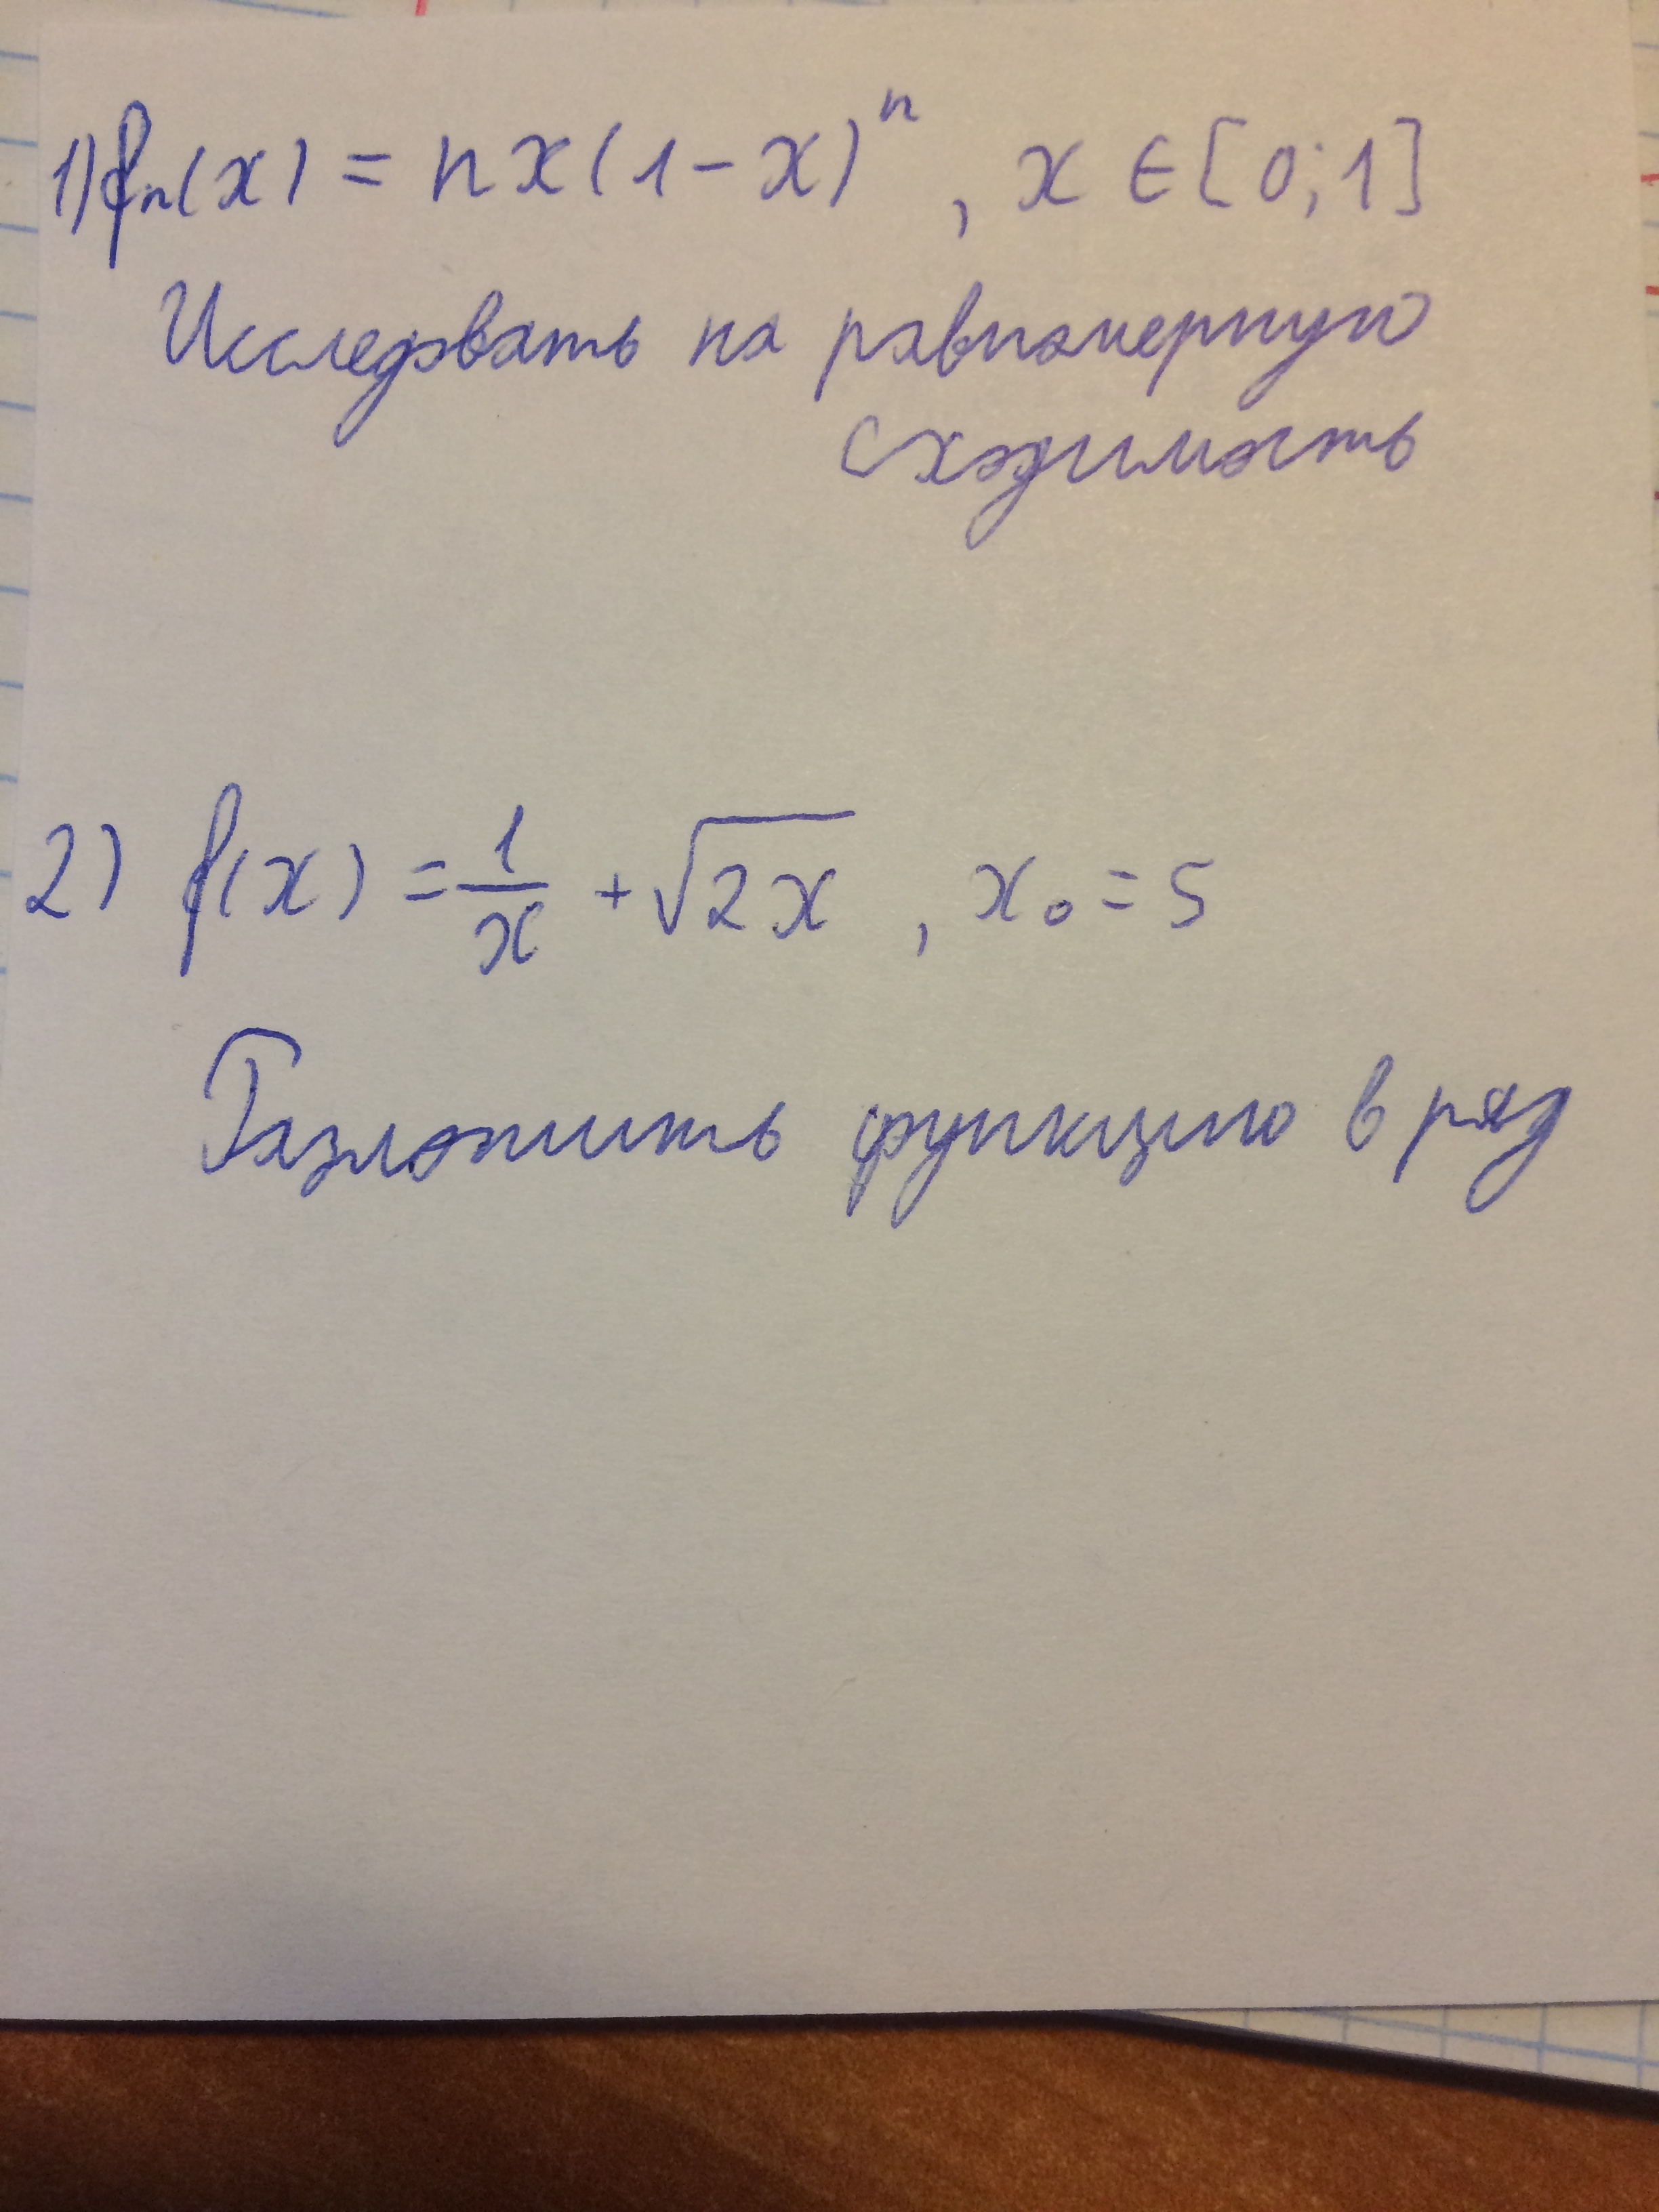 1) fn(x) = nx(1-x)^n, x ∈ [0;1]
Исследовать на равномерную
сходимость
2) f(x) = 1/x + √2x, x₀ = 5
Разложить функцию в ряд